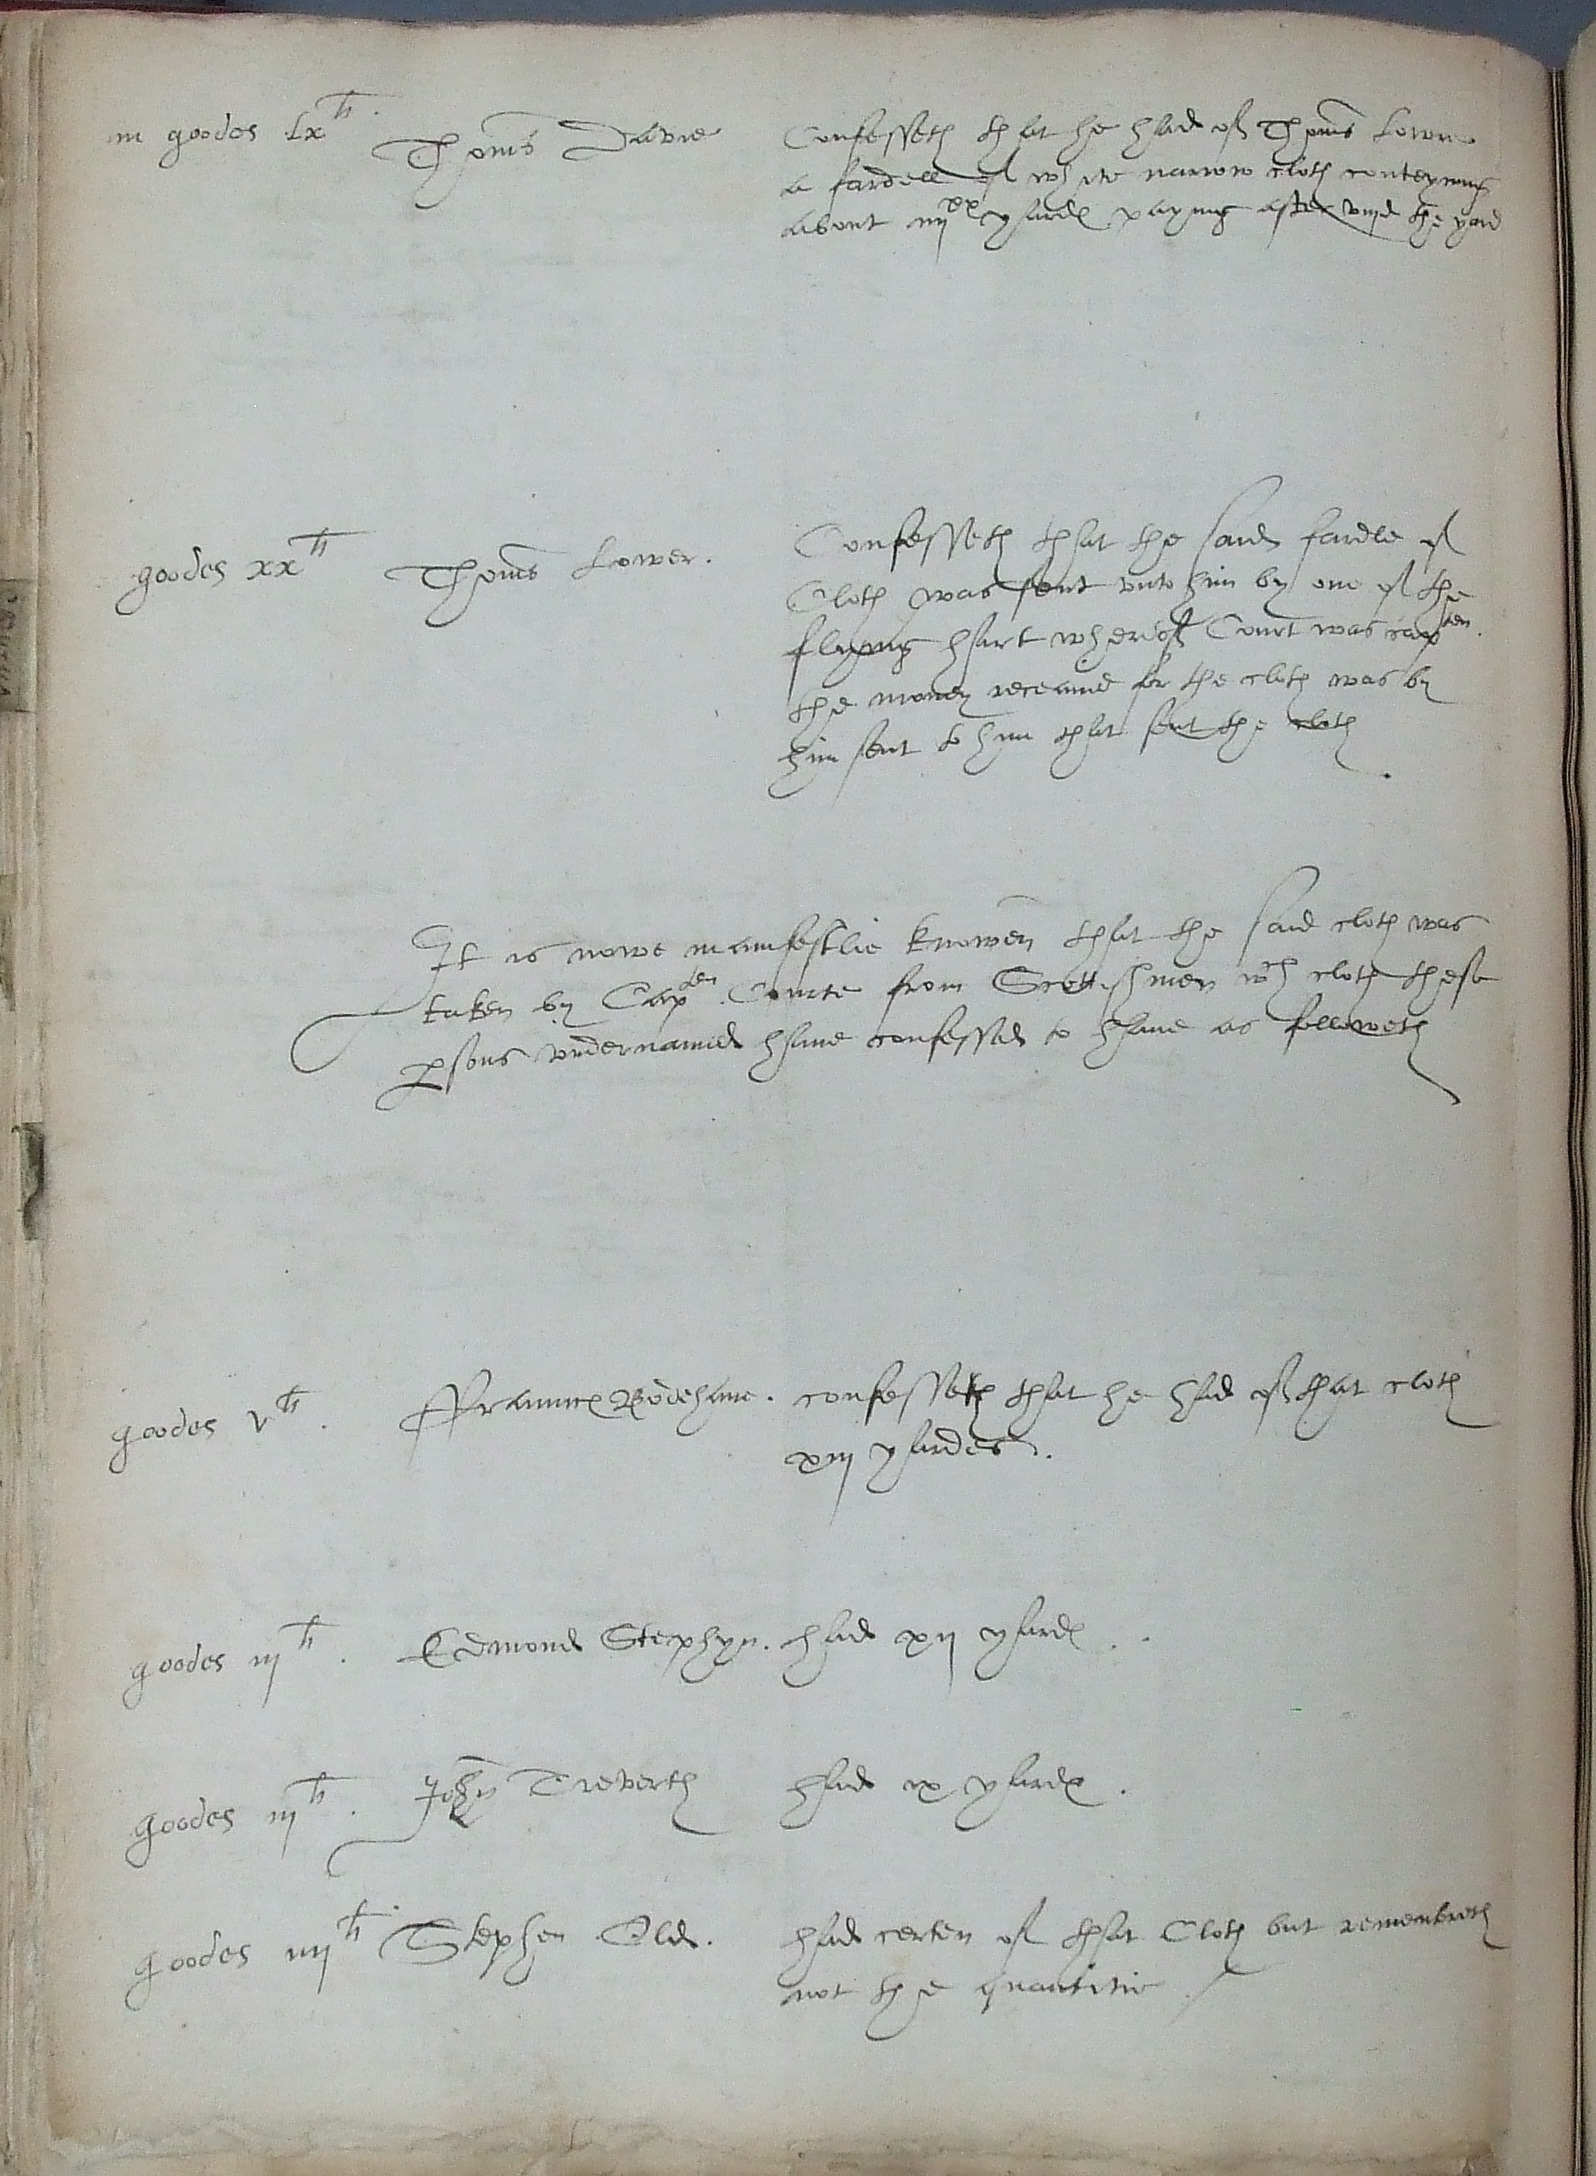 in goodes Lx li. Thomas Davie Confesseth that he had of Thomas Lower
a fardell of white narrow cloth conteyning
about iiij xx yardes paying after viijd the yard
goodes xx li Thomas Lower. Confesseth that the said fardle of
Cloth was sent unto him by one of the
flying hart wherof Court was cap ten.
the money receaued for the cloth was by
him sent to him that sent the cloth.
It is nowe manifestlie knowen that the said cloth was
taken by Cap ten. Courte from Scottishmen wch cloth these
psons vndernamed haue confessed to haue as followeth
goodes v li. ffrauncs Bodehame. confesseth that he had of that cloth
xiij yardes.
goodes iij li. Edmond Stephyn. had xij yardes..
goodes iij li. John Treverth had ix yardes.
goodes iiij li. Stephen Old. had certen of that Cloth but remembreth
not the quantitie /